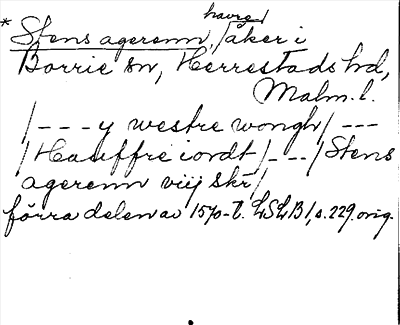 * Stens agerenn, havre/åker i
Borrie sn, Herrestads hd,
Malm. l.
/---y westre wongh/---
/Hauffre iordt/---/Stens
agerenn viij skr/
förra delen av 1570-t. LSLB 1, s. 229. orig.